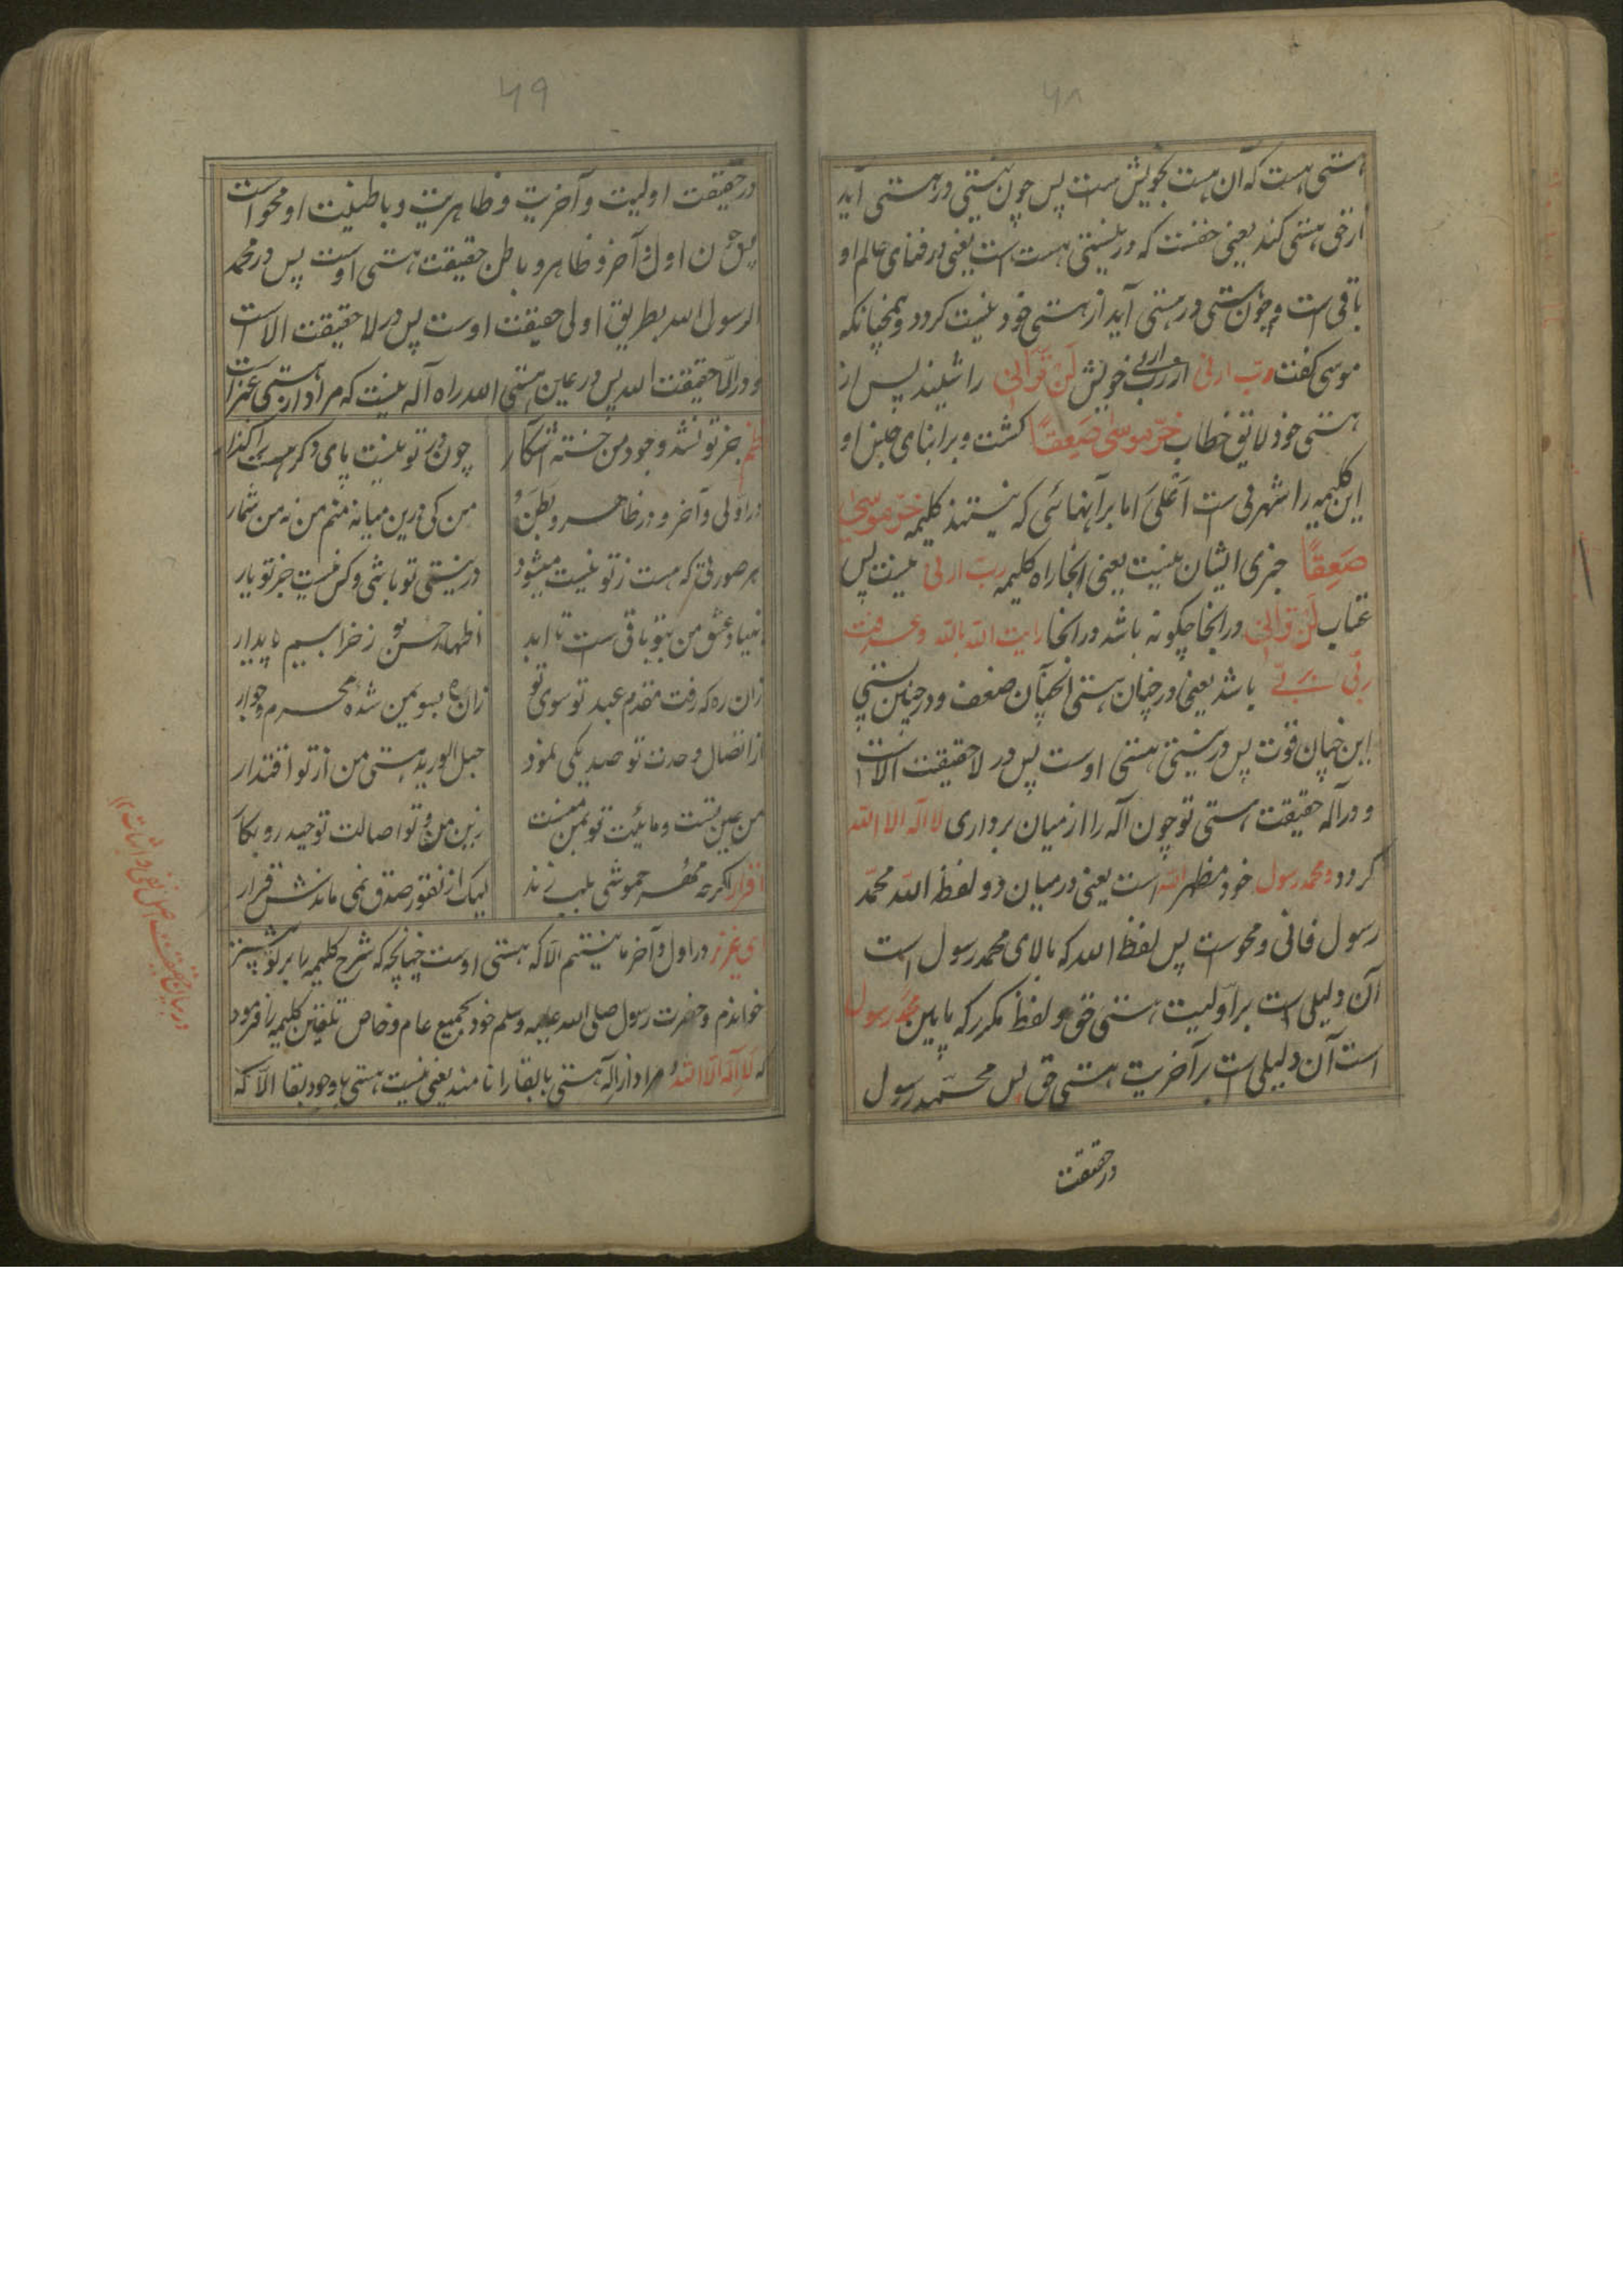 ۶۸
هستی هست که آن هست بخویش است پس چون نیستی در هستی آید
از حق هستی کند یعنی حقست که در نیستی هست است یعنی در فنای عالم او
باقی است و چون هستی در هستی آید از هستی خود نیست کردد و همچنانکه
موسی کفت رب ارنی از رب خویش لن ترانی را شنید پس از
هستی خود لایق خطاب خر موسی صعقا کشت و بر ابنای جنس او
این کلیمه را شهرتی ست اعلی اما بر آنهائی که نیستند کلیمه خر موسی
صعقا خبری ایشان نیست یعنی انجا راه کلیمه رب ارنی نیست پس
عتاب لن ترانی در انجا چکونه باشد در انجا رایت الله بالله و عرفت
ربی بربی باشد یعنی در چنان هستی انچنان ضعف و در چنین نیستی
این چنان قوت پس در نیستی هستی اوست پس در لا حقیقت الاست
و در اله حقیقت هستی تو چون اله را از میان برداری لا اله الا الله
کردد و محمد رسول خود مظهر الله است یعنی در میان دو لفظ الله محمد
رسول فانی و محو است پس لفظ الله که بالای محمد رسول است
آن دلیلی است بر اولیت هستی حق و لفظ مکرر که پایین محمد رسول
است آن دلیلی است بر آخریت هستی حق پس محمد رسول
در حقیقت
۶۹
در حقیقت اولیت و آخریت و ظاهریت و باطنیت او محو است
پس چون اول و آخر و ظاهر و باطن حقیقت هستی اوست پس در محمد
الرسول الله بطریق اولی حقیقت اوست پس در لا حقیقت الا است
و در الا حقیقت الله پس در عین هستی الله راه اله نیست که مراد از هستی غیر است
نظم جز تو نشد وجود من خسته اشکار چون در تو نیست پای دکر هست را کذار
در اولی و آخر و در ظاهر و بطن من کی درین میانه منم من نه من شمار
هر صورتی که هست ز تو نیست میشود در نیستی تو باشی و کس نیست جز تو یار
بنیاد عشق من بتو باقی ست تا ابد اظهار حسن تو ز خرابیم پایدار
زان ره که رفت مقدم عبد تو سوی تو زان ره بسوی من شده محرم و جوار
از اتصال وحدت تو صد یکی نمود حبل الورید هستی من از تو اقتدار
من عین تست و مائیت تو بمن منست زین من و تو اصالت توحید رو بکار
اقرار اکرچه مهر خموشی بلب زند لیک از نفتور صدق نمی ماندش قرار
ای عزیز در اول و آخر ما نیستیم الا که هستی اوست چنانچه که شرح کلیمه بابر تو پیشتر
خواندم و حضرت رسول صلی الله علیه وسلم خود بجمیع عام و خاص تلقین کلیمه را فرمود
که لا اله الا الله مراد از اله هستی بابقا را نامند یعنی نیست هستی با وجود بقا الا که
در بیان حقیقت اصل نفی و اثبات ۱۲